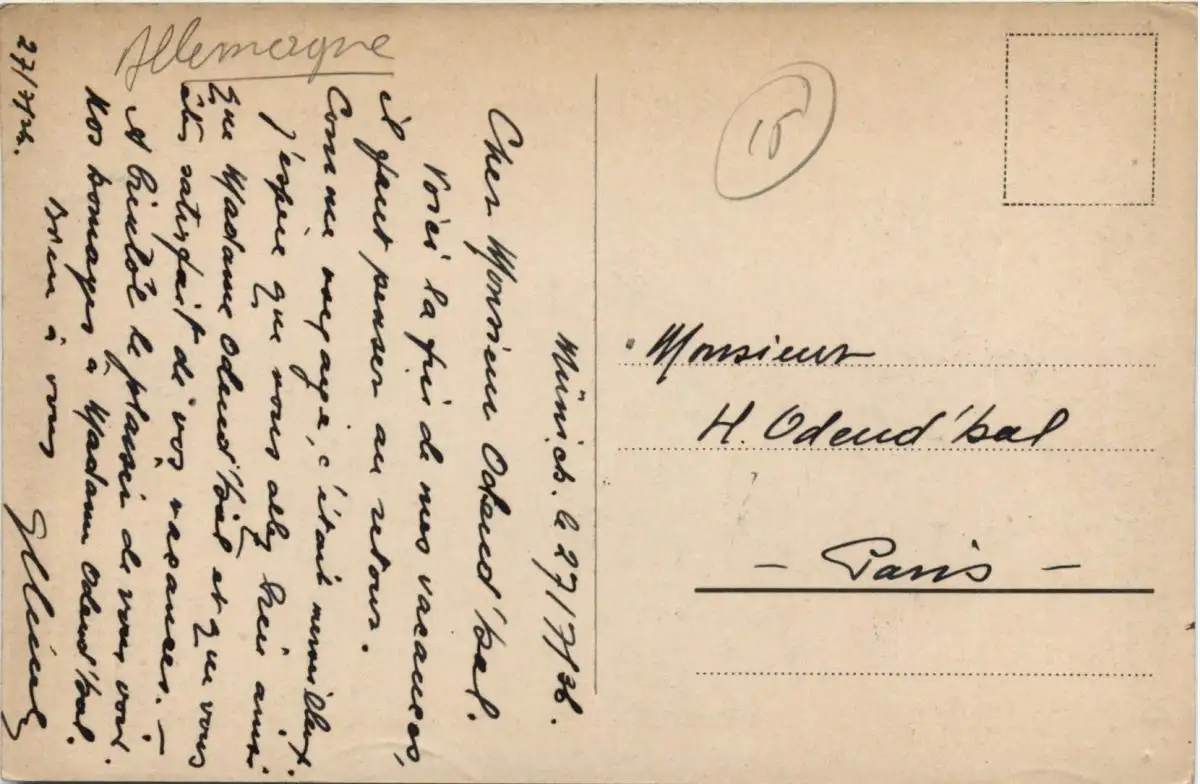 Allemagne
Münich. le 27/7/36.
Cher Monsieur Odend'hal.
Voici la fin de mes vacances,
il faut penser au retour.
Comme voyage, c'était merveilleux.
J'espère que vous allez bien ainsi
que Madame Odend'hal et que vous
êtes satisfait de vos vacances. —
A bientôt le plaisir de vous voir.
Mes homages à Madame Odend'hal.
Bien à vous
27/7/36.
15
Monsieur
H. Odend'hal
- Paris -